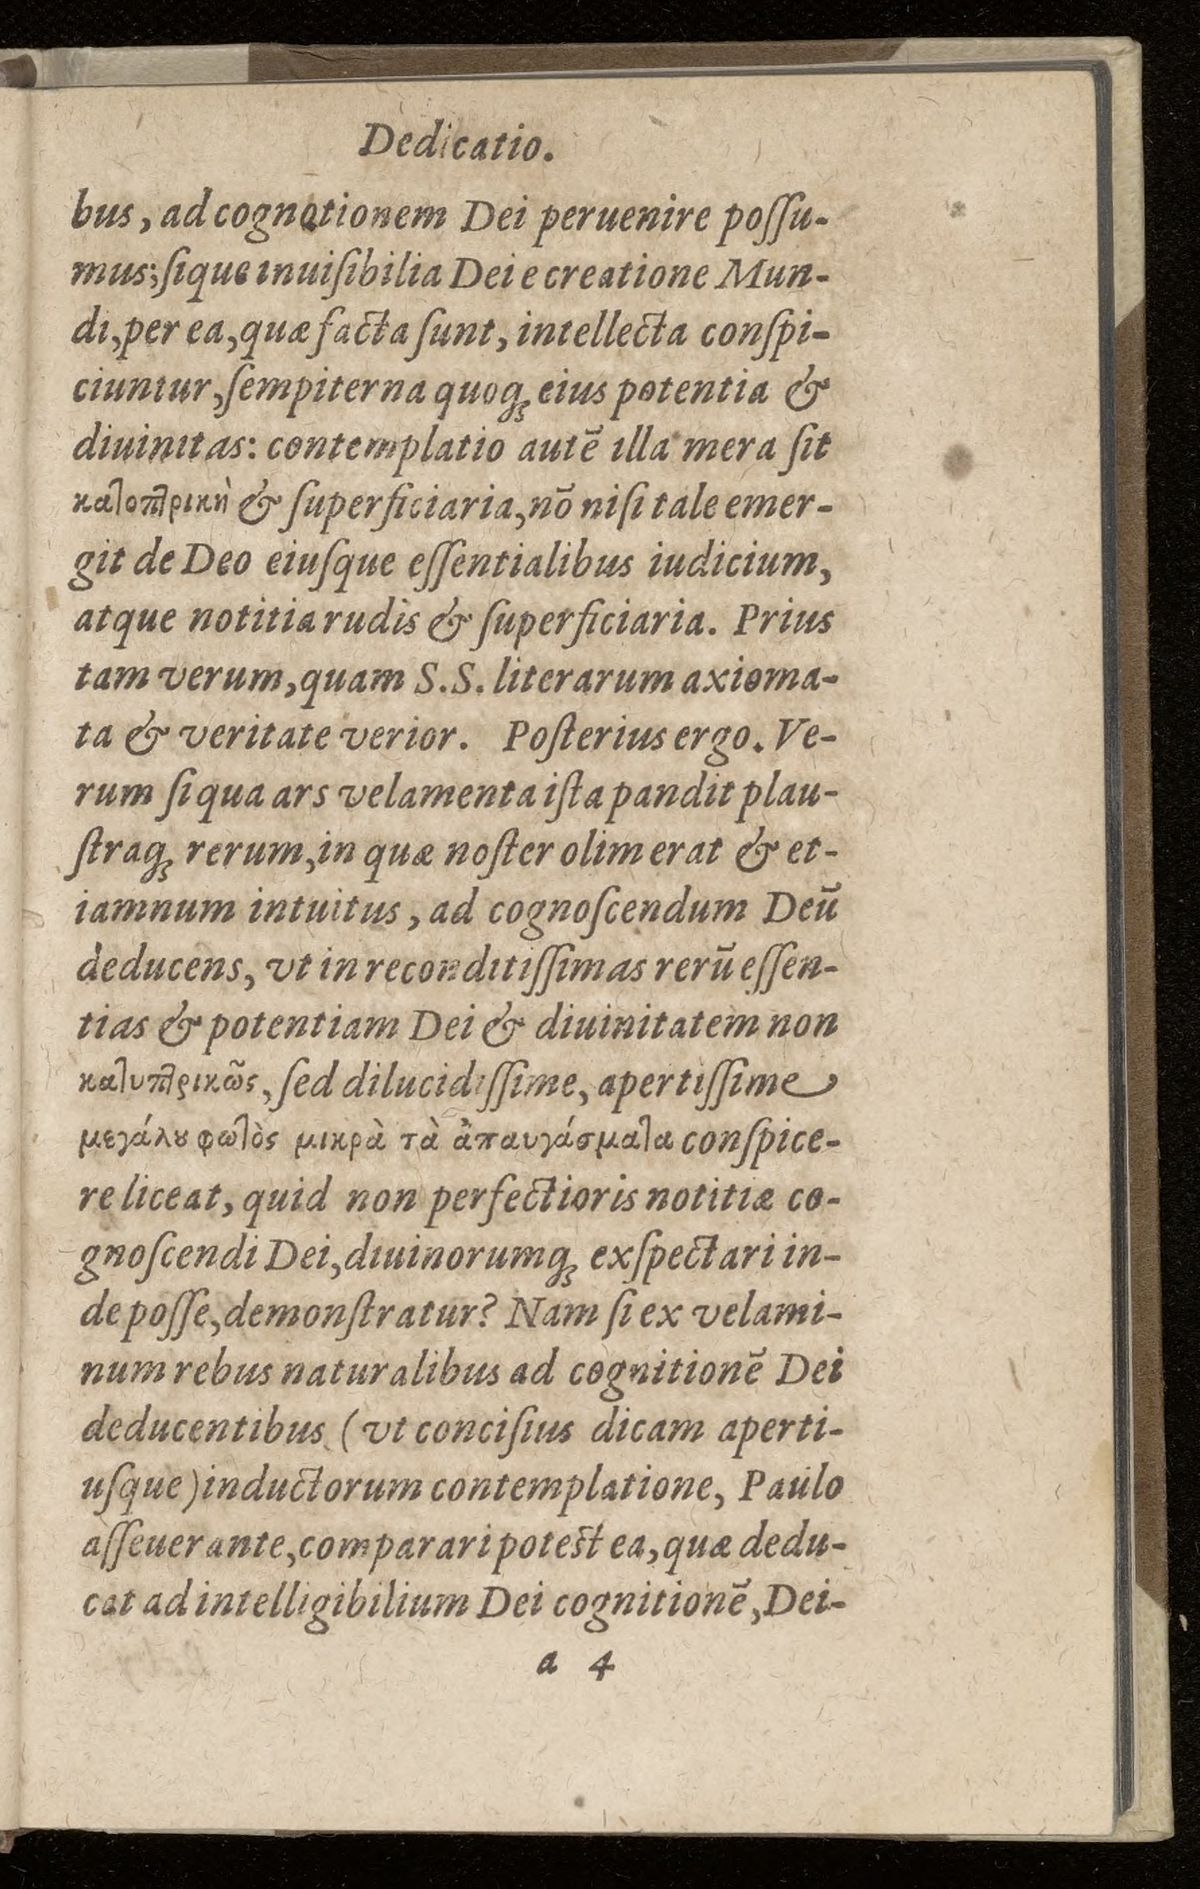 Dedicatio.
bus, ad cognotionem Dei peruenire poſſu-
mus; ſique inuiſibilia Dei e creatione Mun-
di, per ea, quæ facta ſunt, intellecta conſpi-
ciuntur, ſempiterna quoq; eius potentia &
diuinitas: contemplatio autē illa mera ſit
καλοπλρικὴ & ſuperficiaria, nō niſi tale emer-
git de Deo eiuſque eſſentialibus iudicium,
atque notitia rudis & ſuperficiaria. Prius
tam verum, quam S.S. literarum axioma-
ta & veritate verior. Poſterius ergo. Ve-
rum ſi qua ars velamenta iſta pandit plau-
ſtraq; rerum, in quæ noſter olim erat & et-
iamnum intuitus, ad cognoſcendum Deū
deducens, vt in reconditiſſimas rerū eſſen-
tias & potentiam Dei & diuinitatem non
καλυπλρικῶς, ſed dilucidiſſime, apertiſſime
μεγάλȣ φωτὸς μικρὰ τὰ ἀπαυγάσματα conſpice-
re liceat, quid non perfectioris notitiæ co-
gnoſcendi Dei, diuinorumq; exſpectari in-
de poſſe, demonſtratur? Nam ſi ex velami-
num rebus naturalibus ad cognitionē Dei
deducentibus (vt conciſius dicam aperti-
uſque) inductorum contemplatione, Paulo
aſſeuerante, comparari poteſt ea, quæ dedu-
cat ad intelligibilium Dei cognitionē, Dei-
a 4